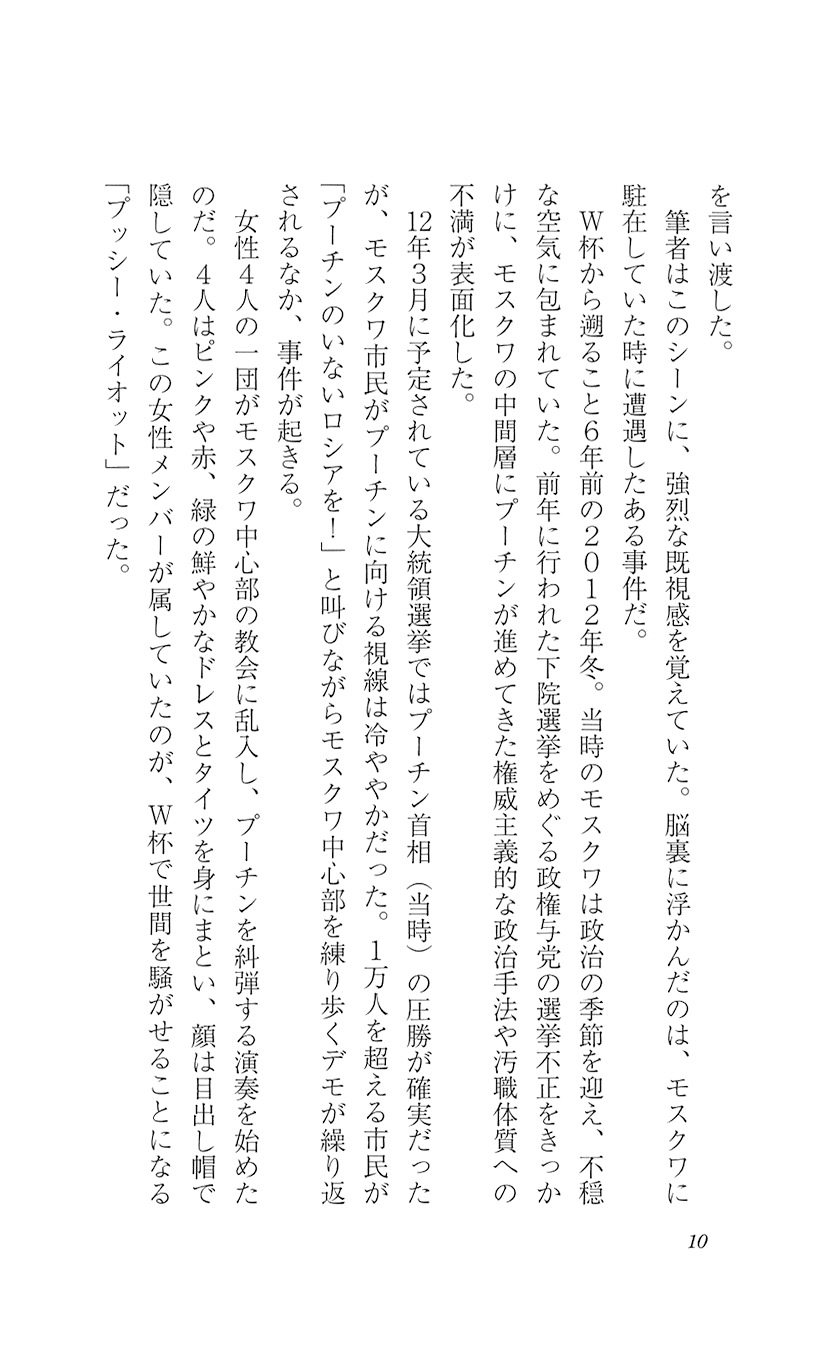 を言い渡した。
筆者はこのシーンに、強烈な既視感を覚えていた。脳裏に浮かんだのは、モスクワに
駐在していた時に遭遇したある事件だ。
W杯から遡ること6年前の2012年冬。当時のモスクワは政治の季節を迎え、不穏
な空気に包まれていた。前年に行われた下院選挙をめぐる政権与党の選挙不正をきっか
けに、モスクワの中間層にプーチンが進めてきた権威主義的な政治手法や汚職体質への
不満が表面化した。
12年3月に予定されている大統領選挙ではプーチン首相（当時）の圧勝が確実だった
が、モスクワ市民がプーチンに向ける視線は冷ややかだった。1万人を超える市民が
「プーチンのいないロシアを！」と叫びながらモスクワ中心部を練り歩くデモが繰り返
されるなか、事件が起きる。
女性4人の一団がモスクワ中心部の教会に乱入し、プーチンを糾弾する演奏を始めた
のだ。4人はピンクや赤、緑の鮮やかなドレスとタイツを身にまとい、顔は目出し帽で
隠していた。この女性メンバーが属していたのが、W杯で世間を騒がせることになる
「プッシー・ライオット」だった。
10